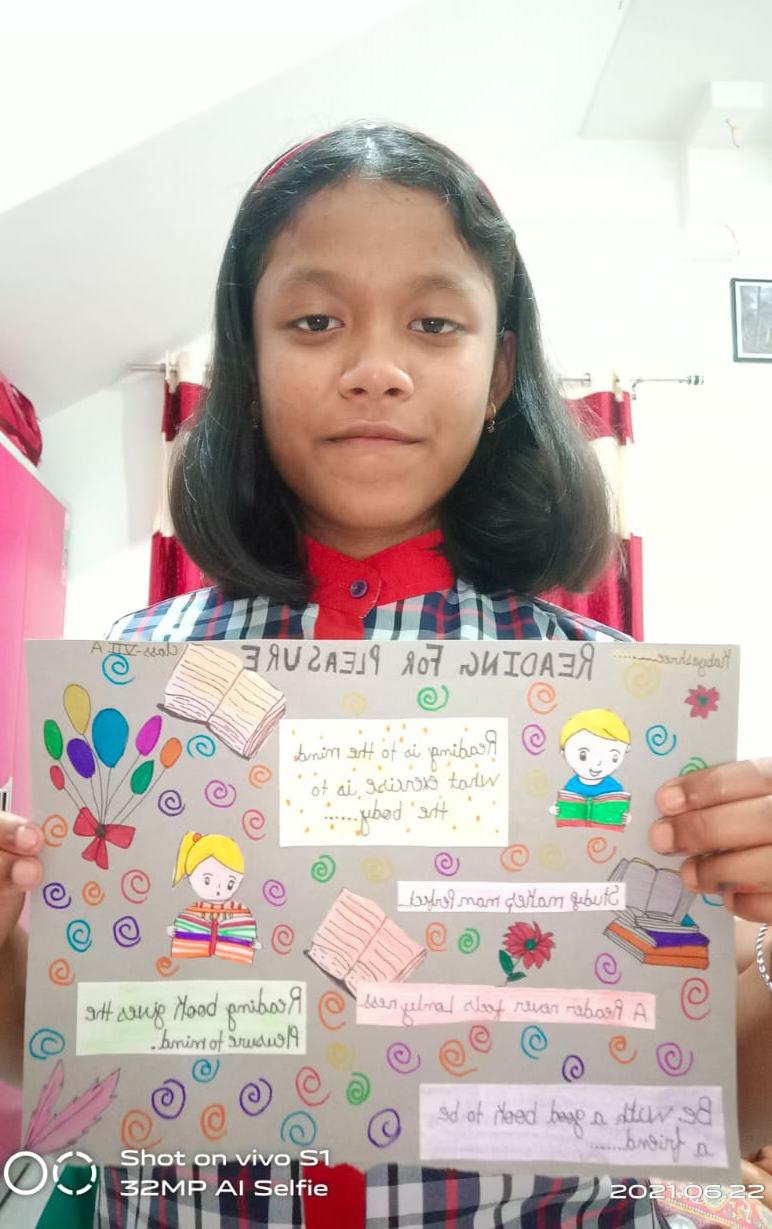 Kabyashree..........
READING FOR PLEASURE
Class-VII A
Reading is to the mind
what exercise is to
the body......
Study makes man Perfect...
A Reader never feels Lonlyness
Reading book gives the
Pleasure to mind.
Be with a good book to be
a friend.......
Shot on vivo S1
32MP AI Selfie
2021.06.22